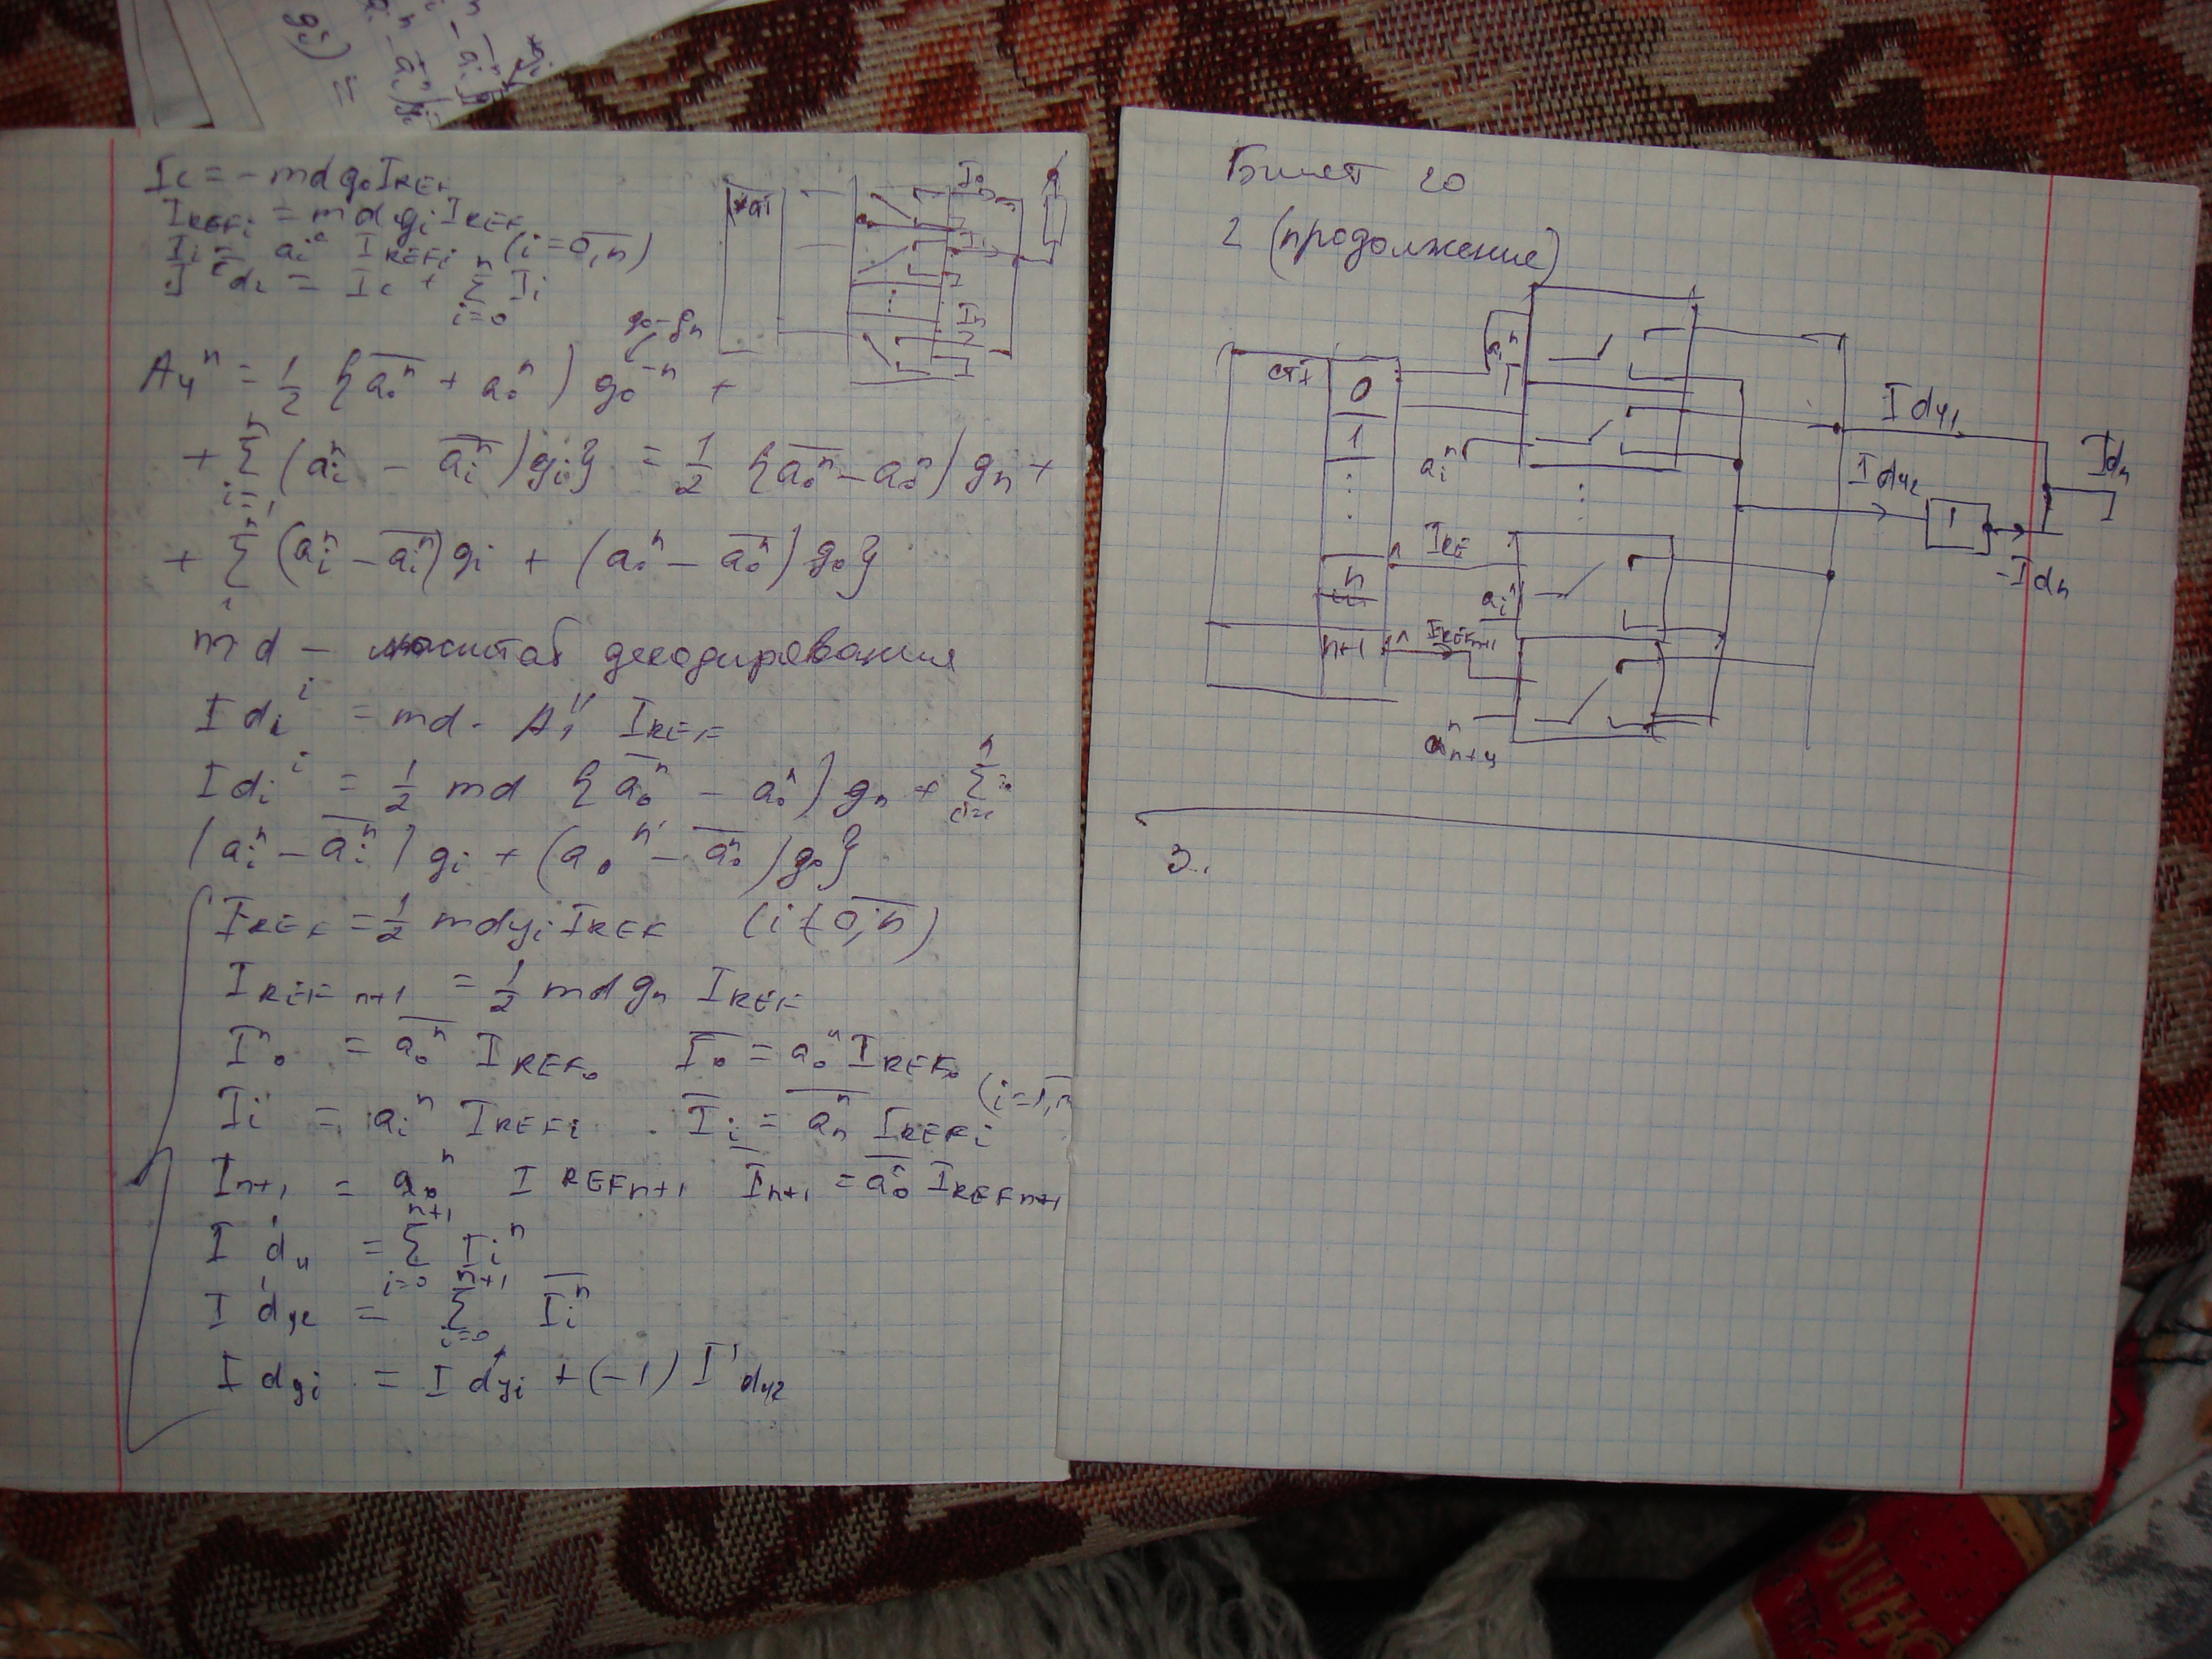 I_c = -md g_0 I_REF
I_REFi = md g_i I_REF
I_i = a_i^n I_REFi (i=\overline{0,n})
I_d2 = I_c + \sum_{i=0}^{n} I_i
g_0-g_n
A_4^n = 1/2 {\overline{a_0^n} + a_0^n) g_0^{-n} +
+ \sum_{i=1}^{n} (a_i^n - \overline{a_i^n}) g_i} = 1/2 {\overline{a_0^n} - a_0^n) g_n +
+ \sum_{i}^{n} (a_i^n - \overline{a_i^n}) g_i + (a_0^n - \overline{a_0^n}) g_0}
md - масштаб декодирования
I_di = md · A I_REF
I_di = 1/2 md {\overline{a_0^n} - a_0^n) g_n + \sum^n
(a_i^n - \overline{a_i^n}) g_i + (a_0^n - \overline{a_0^n}) g_0}
I_REF = 1/2 md y_i I_REF (i \overline{0,n})
I_REF n+1 = 1/2 md g_n I_REF
I_0^n = \overline{a_0^n} I_REF0 \overline{I_0} = a_0^n I_REF0
I_i = a_i^n I_REFi \overline{I_i} = \overline{a_n^n} I_REFi (i=\overline{1,n}
I_n+1 = a_0^n I_REFn+1 \overline{I}_n+1 = \overline{a_0^n} I_REFn+1
I'_d4 = \sum_{i=0}^{n+1} I_i^n
I'_dч2 = \sum_{i=0}^{n+1} \overline{I_i^n}
I_dyi = I_dyi + (-1) I'_dч2
I_0
I_1
I_n
Билет 20
2 (продолжение)
СТ+
0
1
n
n+1
a_i^n
a_i^n
I_RE
a_i^n
I_REFn+1
a^n_n+4
I_dч1
I_dч2
1
I_dn
-I_dn
3.